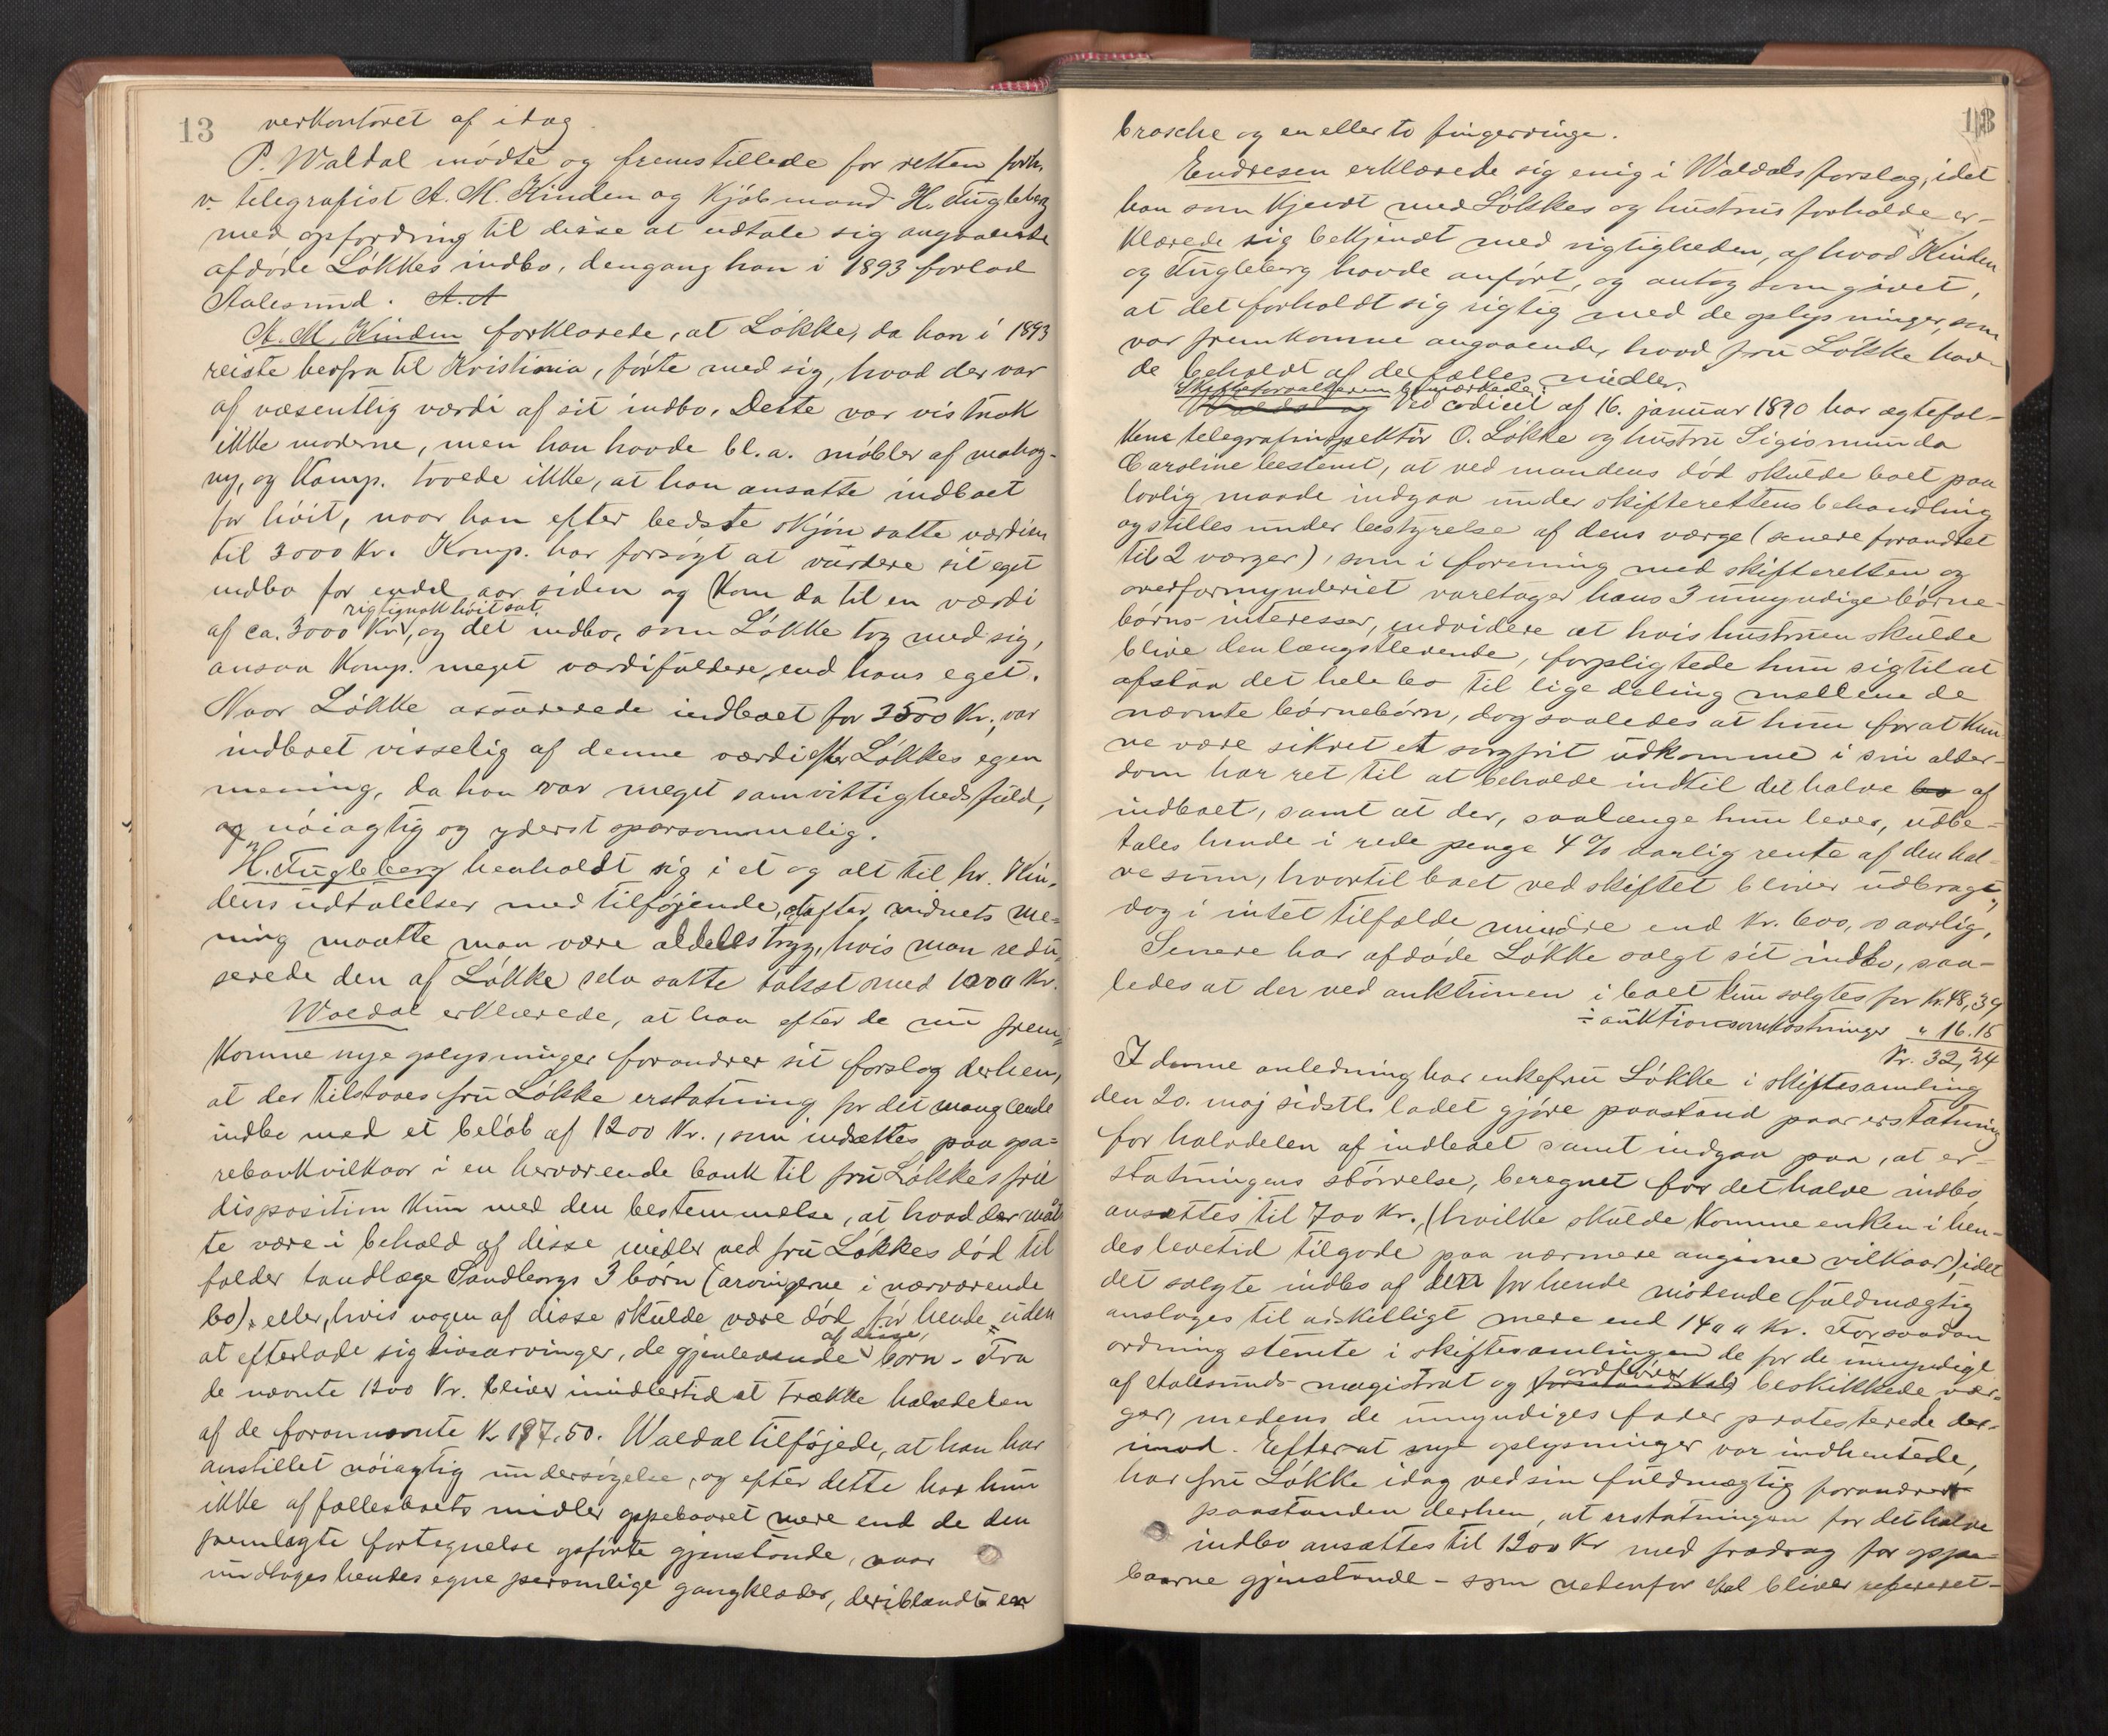 13
verkontoret af idag.
P. Waldal mødte og fremstillede for retten forh.
v. telegrafist A. M. Kinden og Kjøbmand H. Fugleberg
med opfordring til disse at udtale sig angaaende
afdøde Løkkes indbo, dengang han i 1893 forlod
Aalesund. A. A
A. M. Kinden forklarede, at Løkke, da han i 1893
reiste herfra til Kristiania, førte med sig, hvad der var
af væsentlig værdi af sit indbo. Dette var vistnok
ikke moderne, men han havde bl. a. møbler af mahog-
ny, og Komp. troede ikke, at han ansatte indboet
for høit, naar han efter bedste skjøn satte værdien
til 3000 Kr. Komp. har forsøgt at vurdere sit eget
indbo for endel aar siden og kom da til en værdi
rigtignok høit sat
af ca. 3000 Kr., og det indbo, som Løkke tog med sig,
ansaa Komp. meget værdifuldere, end hans eget.
Naar Løkke assurerede indboet for 3500 Kr., var
indboet visselig af denne værdi efter Løkkes egen
mening, da han var meget samvittighedsfuld,
og nøiagtig og yderst sparsommelig.
H. Fugleberg henholdt sig i et og alt til hr. Kin-
dens udtalelser med tilføjende, at efter vidnets me-
ning maatte man være aldeles tryg, hvis man redu-
serede den af Løkke selv satte takst med 1000 Kr.
Waldal erklærede, at han efter de nu frem-
komne nye oplysninger forandrer sit forslag derhen,
at der tilstaaes fru Løkke erstatning for det manglende
indbo med et beløb af 1200 Kr., som indsættes paa spa-
rebankvilkaar i en herværende bank til fru Løkkes frie
disposition kun med den bestemmelse, at hvad der maat
te være i behold af disse midler ved fru Løkkes død til
falder tandlæge Sandborgs 3 børn (arvingerne i nærværende
bo), eller, hvis nogen af disse skulde være død før hende uden
af disse,
at efterlade sig livsarvinger, de gjenlevende børn. Fra
de nævnte 1200 Kr. bliver imidlertid at trække halvdelen
af de forannævnte Kr 197.50. Waldal tilføjede, at han har
anstillet nøiagtig undersøgelse, og efter dette har hun
ikke af fællesboets midler oppebaaret mere end de den
fremlagte fortegnelse opførte gjenstande, naar
undtages hendes egne personlige gangklæder, deriblandt en
13
brosche og en eller to fingerringe.
Endresen erklærede sig enig i Waldals forslag, idet
han som kjendt med Løkkes og hustrus forholde er-
klærede sig bekjendt med rigtigheden, af hvad Kinden
og Fugleberg havde anført, og antog som givet,
at det forholdt sig rigtig med de oplysninger, som
var fremkomne angaaende, hvad fru Løkke hav-
de beholdt af de fælles midler.
Skifteforvalteren bemærkede:
Waldal og Ved codicil af 16. januar 1890 har ægtefol-
kene telegrafinspektør O. Løkke og hustru Sigismunda
Caroline bestemt, at ved mandens død skulde boet paa
lovlig maade indgaa under skifterettens behandling
og stilles under bestyrelse af dens værge (senere forandret
til 2 værger), som i forening med skifteretten og
overformynderiet varetager hans 3 umyndige børne-
børns interesser, endvidere at hvis hustruen skulde
blive den længstlevende, forpligtede hun sig til at
afstaa det hele bo til lige deling mellem de
nævnte børnebørn, dog saaledes at hun for at kun-
ne være sikret et sorgfrit udkomme i sin alder-
dom har ret til at beholde indtil det halve bo af
indboet, samt at der, saalænge hun lever, udbe-
tales hende i rede penge 4 % aarlig rente af den hal-
ve sum, hvortil boet ved skiftet bliver udbragt,
dog i intet tilfælde mindre end Kr. 600, o aarlig.
Senere har afdøde Løkke solgt sit indbo, saa-
ledes at der ved auktionen i boet kun solgtes for Kr. 48,39
÷ auktionsomkostninger " 16.15
Kr. 32,24
I denne anledning har enkefru Løkke i skiftesamling
den 20. maj sidstl. ladet gjøre paastand paa erstatning
for halvdelen af indboet samt indgaa paa, at er-
statningens størrelse, beregnet for det halve indbo,
ansættes til 700 Kr., (hvilke skulde komme enken i hen-
des levetid tilgode paa nærmere angivne vilkaar), idet
det solgte indbo af den for hende mødende fuldmægtig
ansloges til adskilligt mere end 1400 Kr. For saadan
ordning stemte i skiftesamlingen de for de umyndige
ordfører
af Aalesunds magistrat og formandskab beskikkede vær-
ger, medens de umyndiges fader protesterede der-
imod. Efterat nye oplysninger var indhentede,
har fru Løkke idag ved sin fuldmægtig forandret
paastanden derhen, at erstatningen for det halve
indbo ansættes til 1200 Kr med fradrag for oppe-
baarne gjenstande - som nedenfor skal bliver refereret -